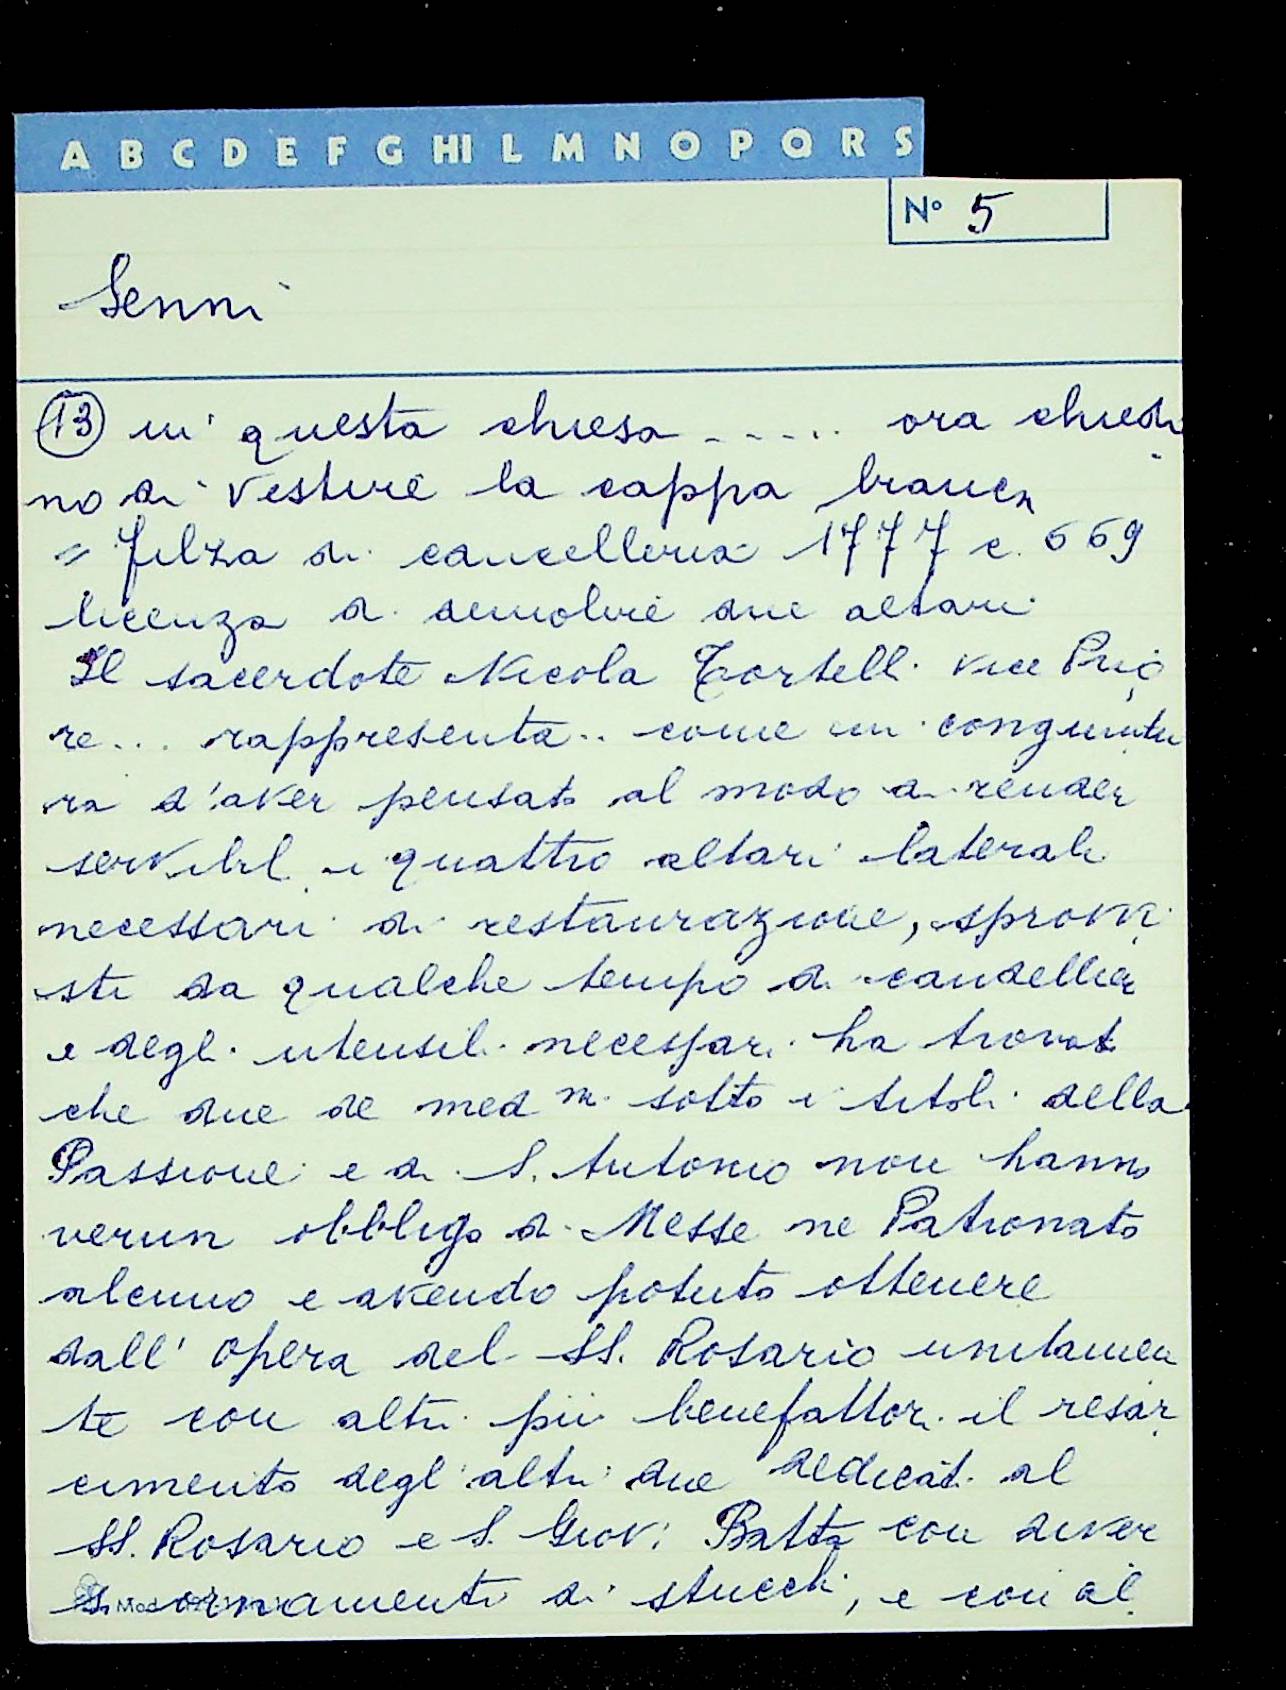 A B C D E F G HI L M N O P Q R S
N° 5
Senni
(13) in questa chiesa ..... ora chiedo
no di vestire la cappa bianca
= Filza di cancelleria 1777 c. 669
licenza di demolire due altari
Il sacerdote Nicola Tortelli vice Prio
re... rappresenta.. come in congiuntu
ra d'aver pensato al modo di render
servibili i quattro altari laterali
necessari di restaurazione, sprovvi
sti da qualche tempo di candellier
e degli utensili necessari ha trovato
che due de med.mi sotto i titoli della
Passione e di S. Antonio non hanno
verun obbligo di Messe ne Patronato
alcuno e avendo potuto ottenere
dall' Opera del SS. Rosario unitamen
te con altri più benefattori il resar
cimento degl'altri due dedicati al
SS. Rosario e S. Giov: Batta con diver
si ornamenti di stucchi, e con al